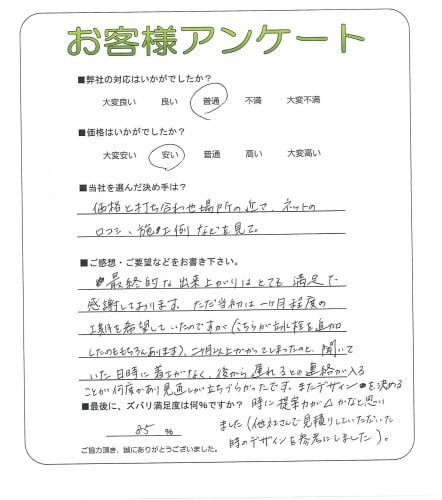 お客様アンケート
■弊社の対応はいかがでしたか?
大変良い 良い 普通 不満 大変不満
■価格はいかがでしたか?
大変安い 安い 普通 高い 大変高い
■当社を選んだ決め手は?
価格と打ち合わせ場所の近さ、ネットの
口コミ、施工例などを見て。
■ご感想・ご要望などをお書き下さい。
最終的な出来上がりはとても満足で
感謝しております。ただ当初は一ヶ月程度の
工期を希望していたのですが(こちらが立水栓を追加
したのももちろんあります)、二ヶ月以上かかってしまったのと、聞いて
いた日時に着工がなく、後から遅れるとの連絡が入る
ことが何度かあり見通しが立ちづらかったです。またデザインを決める
■最後に、ズバリ満足度は何%ですか?
時に提案力が△かなと思い
85 %
ました(他社さんで見積りしていただいた
時のデザインを参考にしました)。
ご協力頂き、誠にありがとうございました。